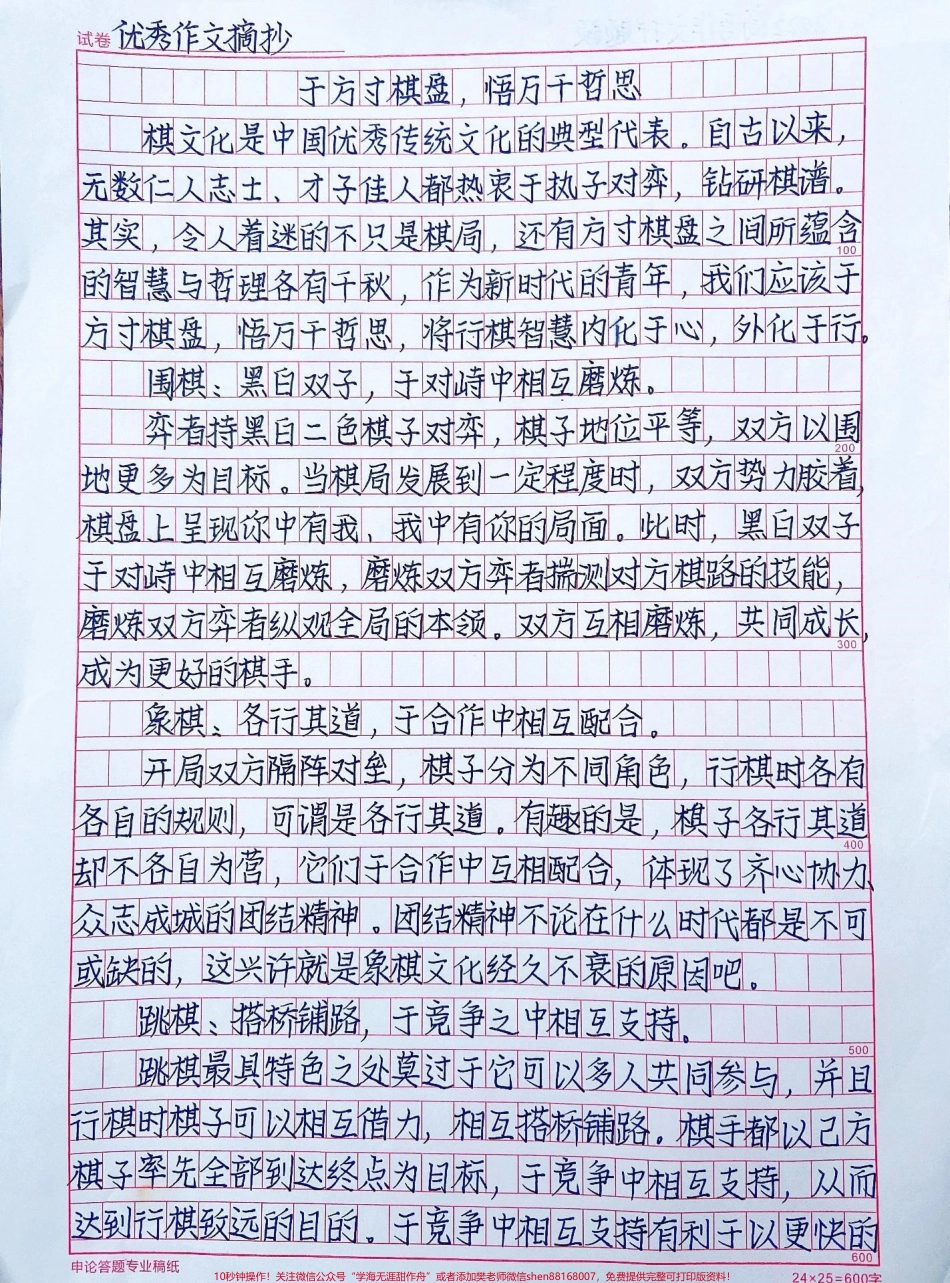 试卷 优秀作文摘抄
于方寸棋盘，悟万千哲思
棋文化是中国优秀传统文化的典型代表。自古以来，
无数仁人志士、才子佳人都热衷于执子对弈，钻研棋谱。
其实，令人着迷的不只是棋局，还有方寸棋盘之间所蕴含
100
的智慧与哲理各有千秋，作为新时代的青年，我们应该于
方寸棋盘，悟万千哲思，将行棋智慧内化于心，外化于行。
围棋：黑白双子，于对峙中相互磨炼。
弈者持黑白二色棋子对弈，棋子地位平等，双方以围
200
地更多为目标。当棋局发展到一定程度时，双方势力胶着，
棋盘上呈现你中有我、我中有你的局面。此时，黑白双子
于对峙中相互磨炼，磨炼双方弈者揣测对方棋路的技能，
磨炼双方弈者纵观全局的本领。双方互相磨炼，共同成长，
300
成为更好的棋手。
象棋：各行其道，于合作中相互配合。
开局双方隔阵对垒，棋子分为不同角色，行棋时各有
各自的规则，可谓是各行其道。有趣的是，棋子各行其道
400
却不各自为营，它们于合作中互相配合，体现了齐心协力、
众志成城的团结精神。团结精神不论在什么时代都是不可
或缺的，这兴许就是象棋文化经久不衰的原因吧。
跳棋：搭桥铺路，于竞争之中相互支持。
500
跳棋最具特色之处莫过于它可以多人共同参与，并且
行棋时棋子可以相互借力，相互搭桥铺路。棋手都以己方
棋子率先全部到达终点为目标，于竞争中相互支持，从而
达到行棋致远的目的。于竞争中相互支持有利于以更快的
600
申论答题专业稿纸 24×25=600字
10秒钟操作！关注微信公众号“学海无涯甜作舟”或者添加樊老师微信shen88168007，免费提供完整可打印版资料！